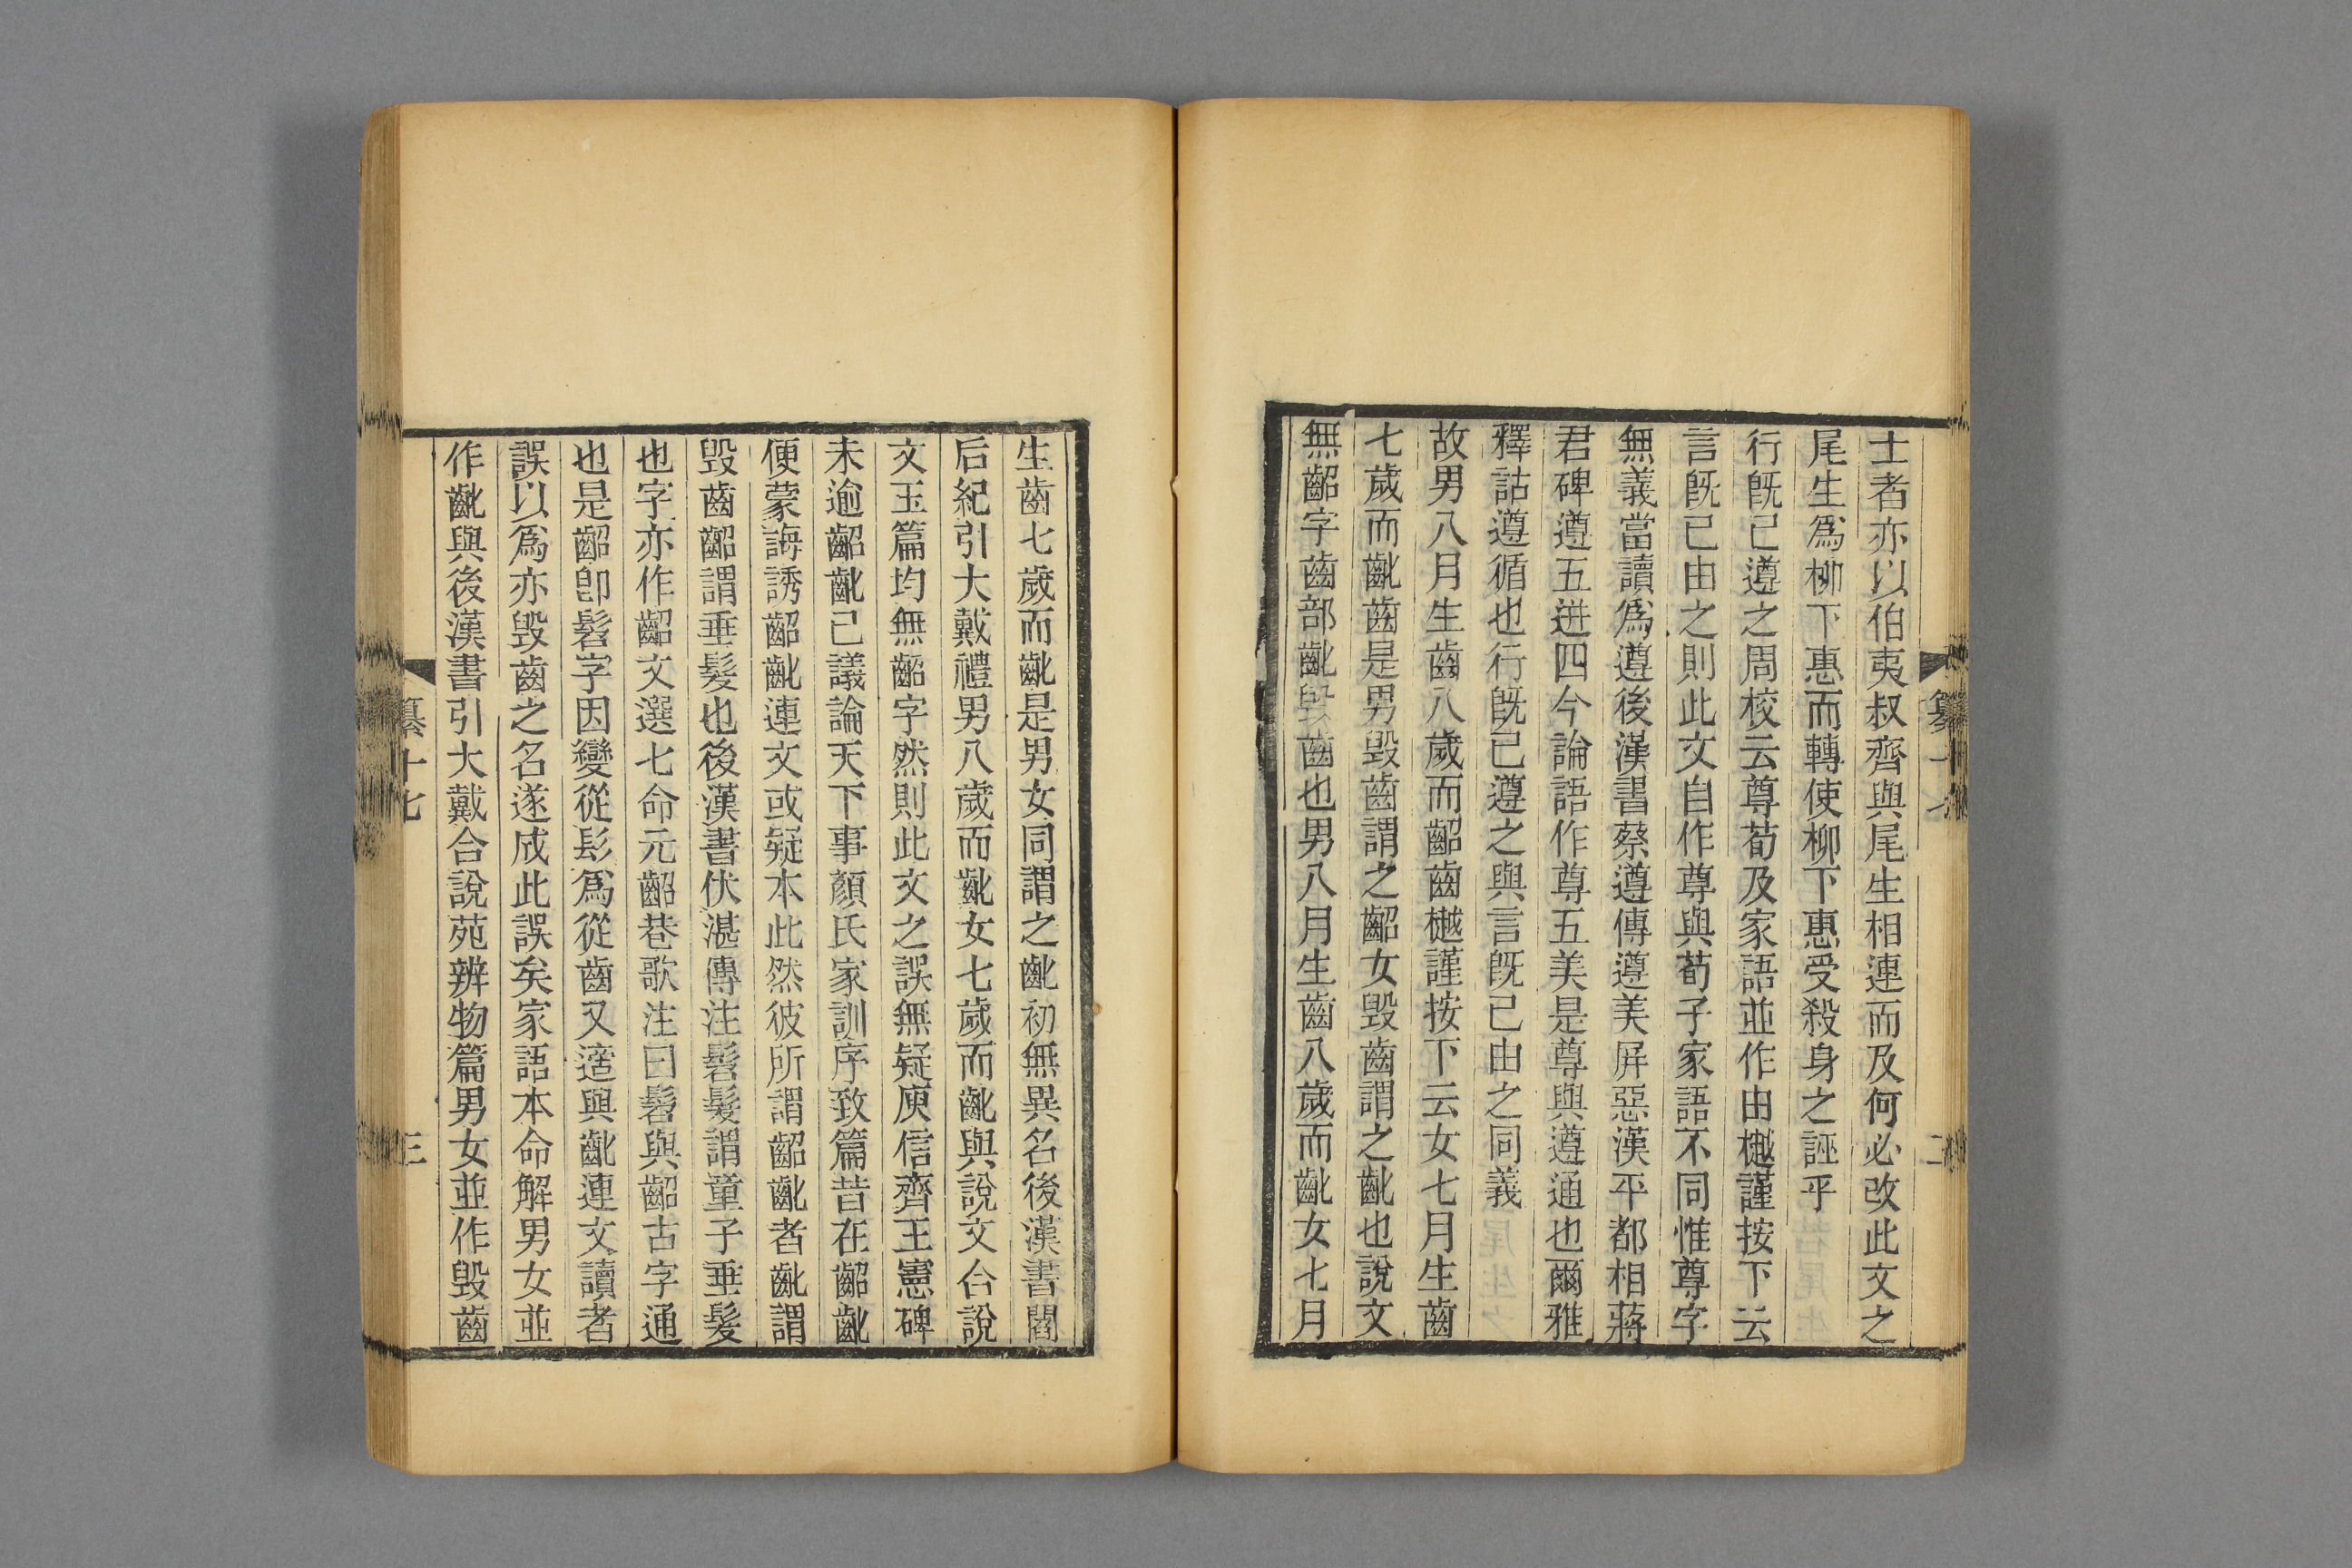 士者亦以伯夷叔齊與尾生相連而及何必改此文之
尾生爲柳下惠而轉使柳下惠受殺身之誣乎
行旣已遵之周校云尊荀及家語並作由樾謹按下云
言旣已由之則此文自作尊與荀子家語不同惟尊字
無義當讀爲遵後漢書蔡遵傳遵美屏惡漢平都相蔣
君碑遵五迸四今論語作尊五美是尊與遵通也爾雅
釋詁遵循也行旣已遵之與言旣已由之同義
故男八月生齒八歲而齠齒樾謹按下云女七月生齒
七歲而齔齒是男毀齒謂之齠女毀齒謂之齔也說文
無齠字齒部齔毀齒也男八月生齒八歲而齔女七月
纂十七
二
生齒七歲而齔是男女同謂之齔初無異名後漢書閻
后紀引大戴禮男八歲而齔女七歲而齔與說文合說
文玉篇均無齠字然則此文之誤無疑庾信齊王憲碑
未逾齠齔已議論天下事顏氏家訓序致篇昔在齠齔
便蒙誨誘齠齔連文或疑本此然彼所謂齠齔者齔謂
毀齒齠謂垂髮也後漢書伏湛傳注髫髮謂童子垂髮
也字亦作齠文選七命元齠巷歌注曰髫與齠古字通
也是齠卽髫字因變從髟爲從齒又適與齔連文讀者
誤以爲亦毀齒之名遂成此誤矣家語本命解男女並
作齔與後漢書引大戴合說苑辨物篇男女並作毀齒
纂十七
三